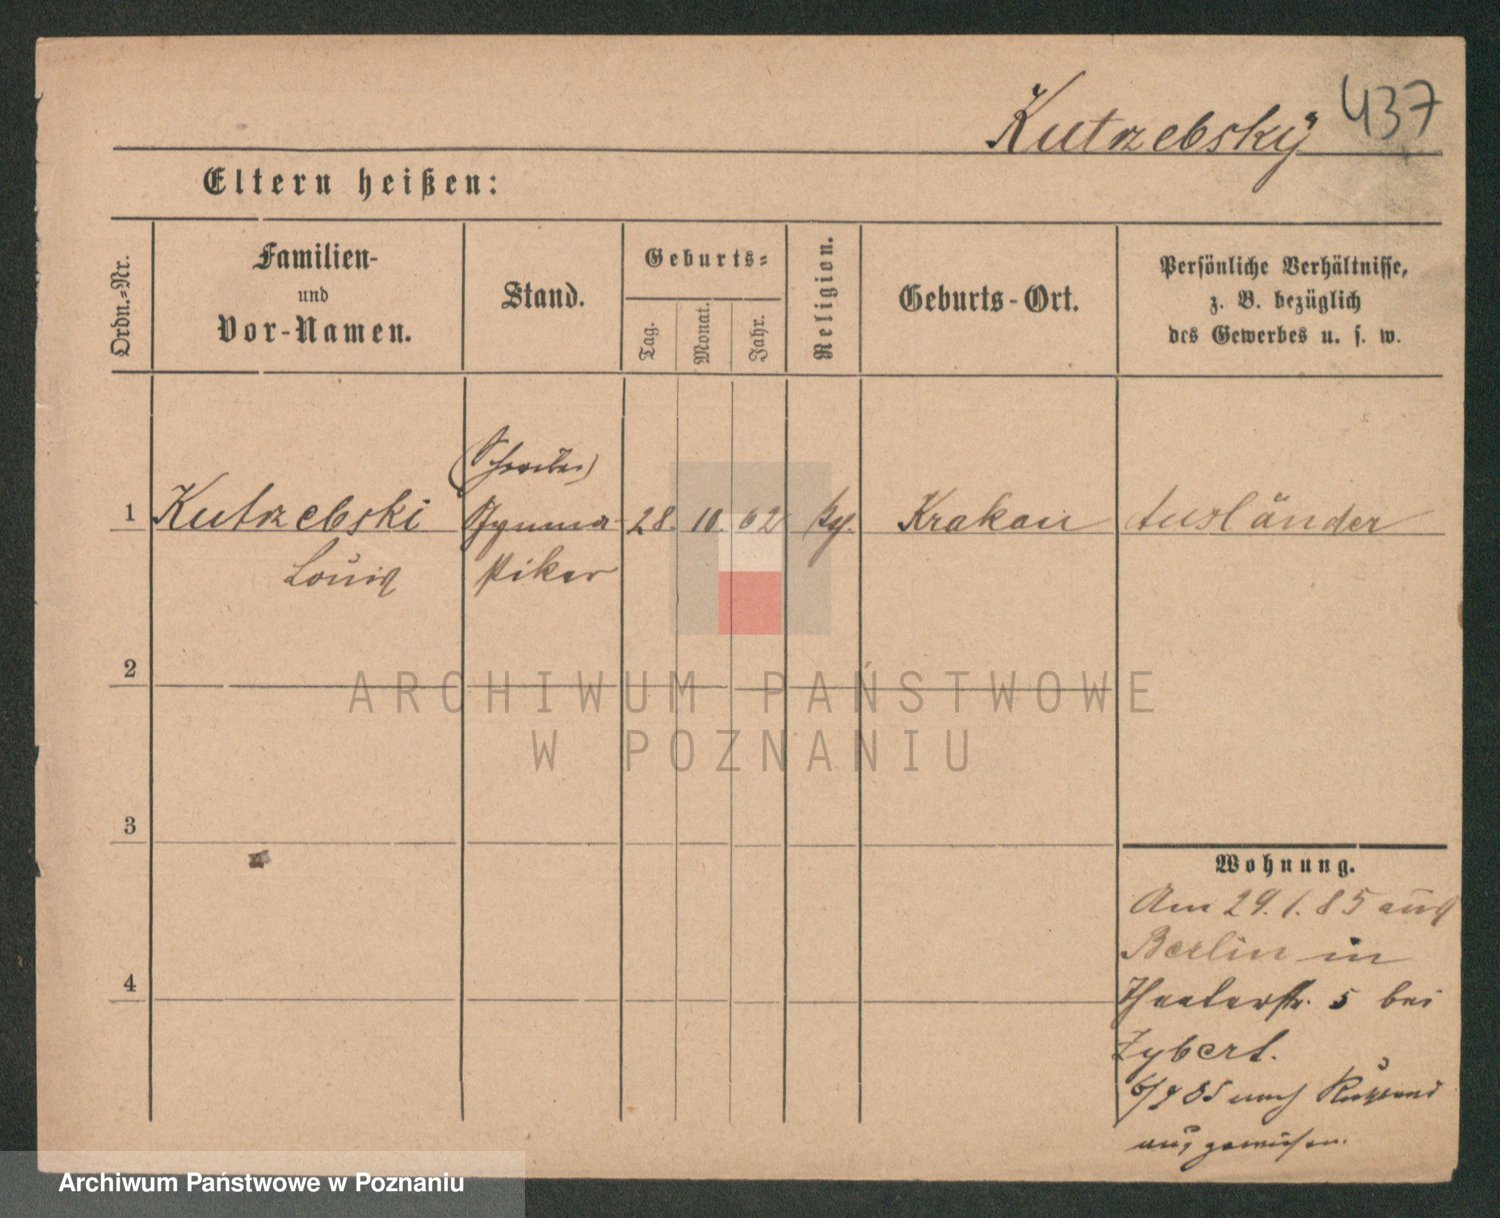 437
Kutrzebsky
Eltern heißen:
Ordn.-Nr.
Familien-
und
Vor-Namen.
Stand.
Geburts-
Tag.
Monat.
Jahr.
Religion.
Geburts-Ort.
Persönliche Verhältnisse,
z. B. bezüglich
des Gewerbes u. s. w.
(Schreiber)
1 Kutrzebski Gymna 28. 10. 62 Krakau Ausländer
Louis stiker
2
ARCHIWUM PAŃSTWOWE
W POZNANIU
3
Wohnung.
Am 29.1.85 aus
Berlin in
4
Theaterstr. 5 bei
Zybert.
85 nach Russland
ausgewiesen.
Archiwum Państwowe w Poznaniu